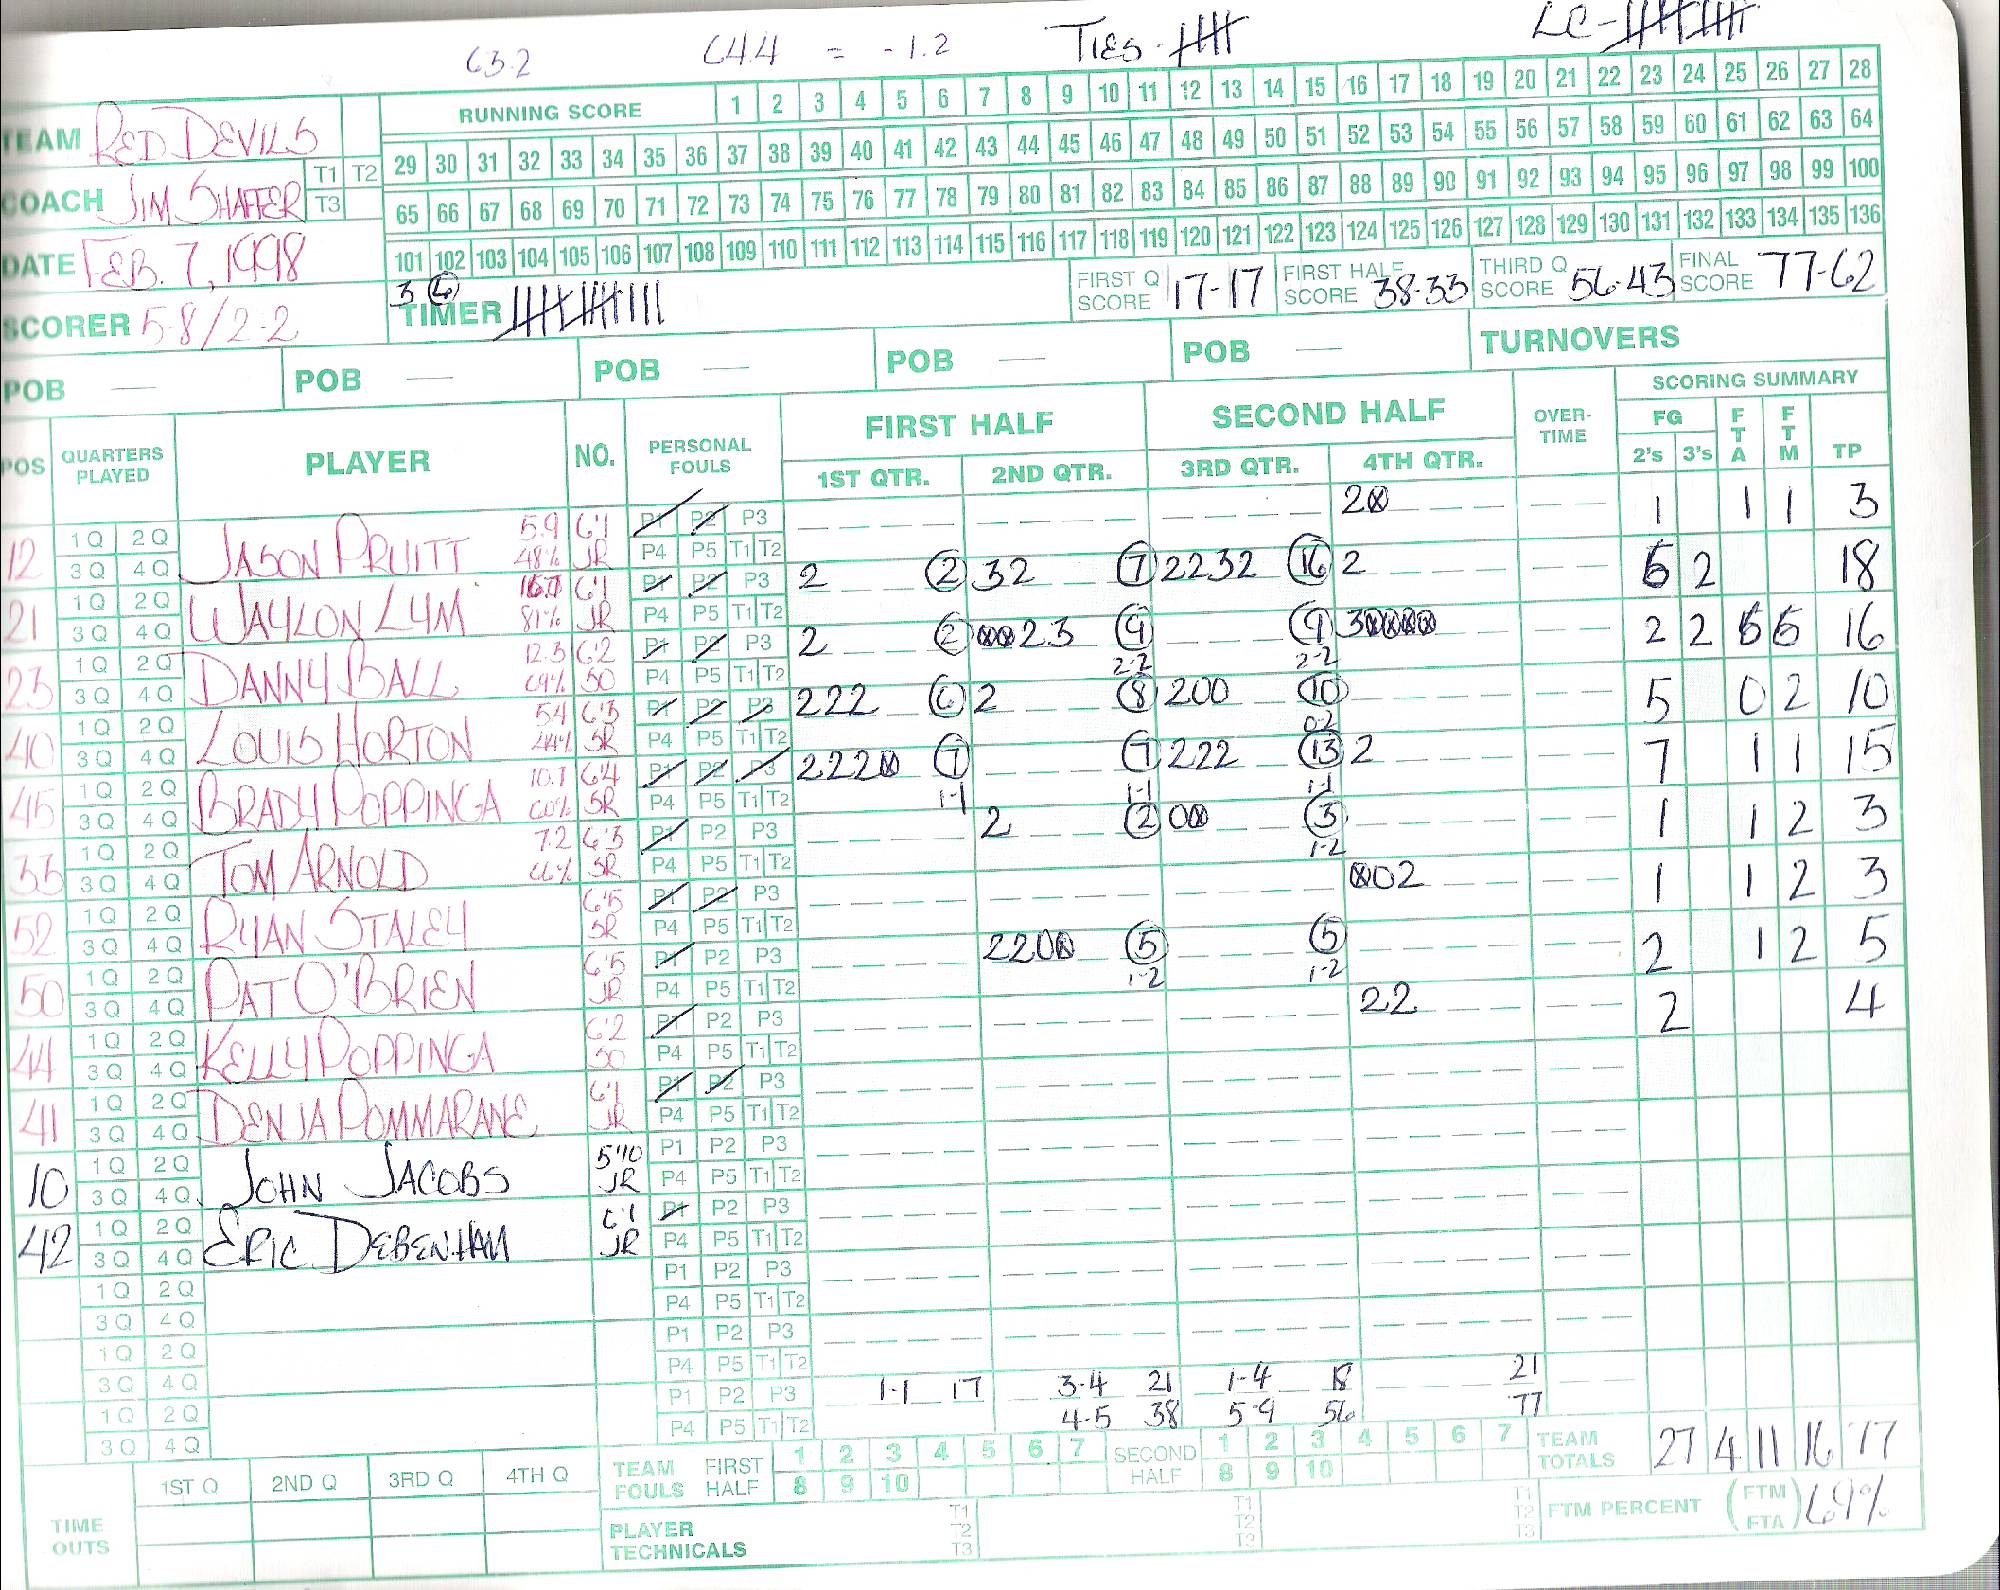 63.2 64.4 = -1.2 TIES- LC-
RUNNING SCORE 1 2 3 4 5 6 7 8 9 10 11 12 13 14 15 16 17 18 19 20 21 22 23 24 25 26 27 28
TEAM RED DEVILS
29 30 31 32 33 34 35 36 37 38 39 40 41 42 43 44 45 46 47 48 49 50 51 52 53 54 55 56 57 58 59 60 61 62 63 64
COACH JIM SHAFFER T1 T2 T3
65 66 67 68 69 70 71 72 73 74 75 76 77 78 79 80 81 82 83 84 85 86 87 88 89 90 91 92 93 94 95 96 97 98 99 100
DATE FEB. 7, 1998
101 102 103 104 105 106 107 108 109 110 111 112 113 114 115 116 117 118 119 120 121 122 123 124 125 126 127 128 129 130 131 132 133 134 135 136
SCORER 5-8/2-2
3 4 TIMER
FIRST Q SCORE 17-17 FIRST HALF SCORE 38-33 THIRD Q SCORE 56-43 FINAL SCORE 77-62
POB — POB — POB — POB — POB — TURNOVERS
POS QUARTERS PLAYED PLAYER NO. PERSONAL FOULS FIRST HALF SECOND HALF OVER-TIME SCORING SUMMARY
1ST QTR. 2ND QTR. 3RD QTR. 4TH QTR. FG 2's 3's FTA FTM TP
12 1Q 2Q 3Q 4Q JASON PRUITT 5.9 48% 6'1 JR P1 P2 P3 P4 P5 T1 T2 20 1 1 1 3
21 1Q 2Q 3Q 4Q WAYLON LYM 81% 6'1 JR P1 P2 P3 P4 P5 T1 T2 2 2 32 7 2232 16 2 6 2 18
23 1Q 2Q 3Q 4Q DANNY BALL 12.3 69% 6'2 SO P1 P2 P3 P4 P5 T1 T2 2 2 0023 9 2-2 9 2-2 30000 2 2 6 6 16
40 1Q 2Q 3Q 4Q LOUIS HORTON 5.4 44% 6'3 SR P1 P2 P3 P4 P5 T1 T2 222 6 2 8 200 10 0-2 5 0 2 10
45 1Q 2Q 3Q 4Q BRADY POPPINGA 10.7 60% 6'4 SR P1 P2 P3 P4 P5 T1 T2 2220 7 1-1 7 1-1 222 13 1-1 2 7 1 1 15
33 1Q 2Q 3Q 4Q TOM ARNOLD 7.2 66% 6'3 SR P1 P2 P3 P4 P5 T1 T2 2 2 00 3 1-2 1 1 2 3
52 1Q 2Q 3Q 4Q RYAN STALEY 6'5 SR P1 P2 P3 P4 P5 T1 T2 002 1 1 2 3
50 1Q 2Q 3Q 4Q PAT O'BRIEN 6'5 JR P1 P2 P3 P4 P5 T1 T2 2200 5 1-2 5 1-2 2 1 2 5
44 1Q 2Q 3Q 4Q KELLY POPPINGA 6'2 SO P1 P2 P3 P4 P5 T1 T2 22 2 4
41 1Q 2Q 3Q 4Q DENJA POMMARANE 6'1 JR P1 P2 P3 P4 P5 T1 T2
10 1Q 2Q 3Q 4Q JOHN JACOBS 5'10 JR P1 P2 P3 P4 P5 T1 T2
42 1Q 2Q 3Q 4Q ERIC DEBENHAM 6'1 JR P1 P2 P3 P4 P5 T1 T2
1Q 2Q 3Q 4Q P1 P2 P3 P4 P5 T1 T2
1Q 2Q 3Q 4Q P1 P2 P3 P4 P5 T1 T2
1Q 2Q 3Q 4Q P1 P2 P3 P4 P5 T1 T2
1-1 17 3-4 21 1-4 18 21
4-5 38 5-9 56 77
1ST Q 2ND Q 3RD Q 4TH Q TEAM FOULS FIRST HALF 1 2 3 4 5 6 7 8 9 10 SECOND HALF 1 2 3 4 5 6 7 8 9 10 TEAM TOTALS 27 4 11 16 77
TIME OUTS PLAYER TECHNICALS T1 T2 T3 T1 T2 T3 T1 T2 T3 FTM PERCENT (FTM FTA) 69%